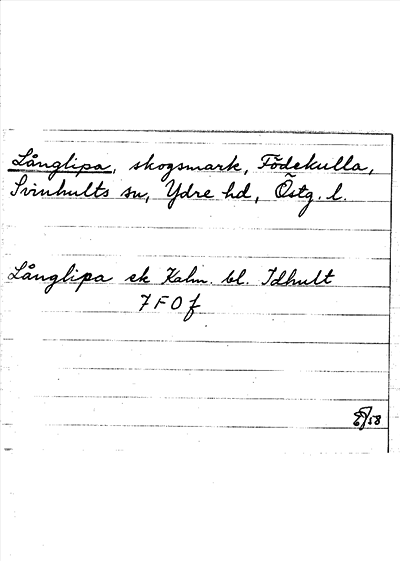 Långlipa, skogsmark, Födekulla,
Svinhults sn, Ydre hd, Östg. l.
Långlipa ek Kalm. bl. Idhult
7 F 0 f
/58